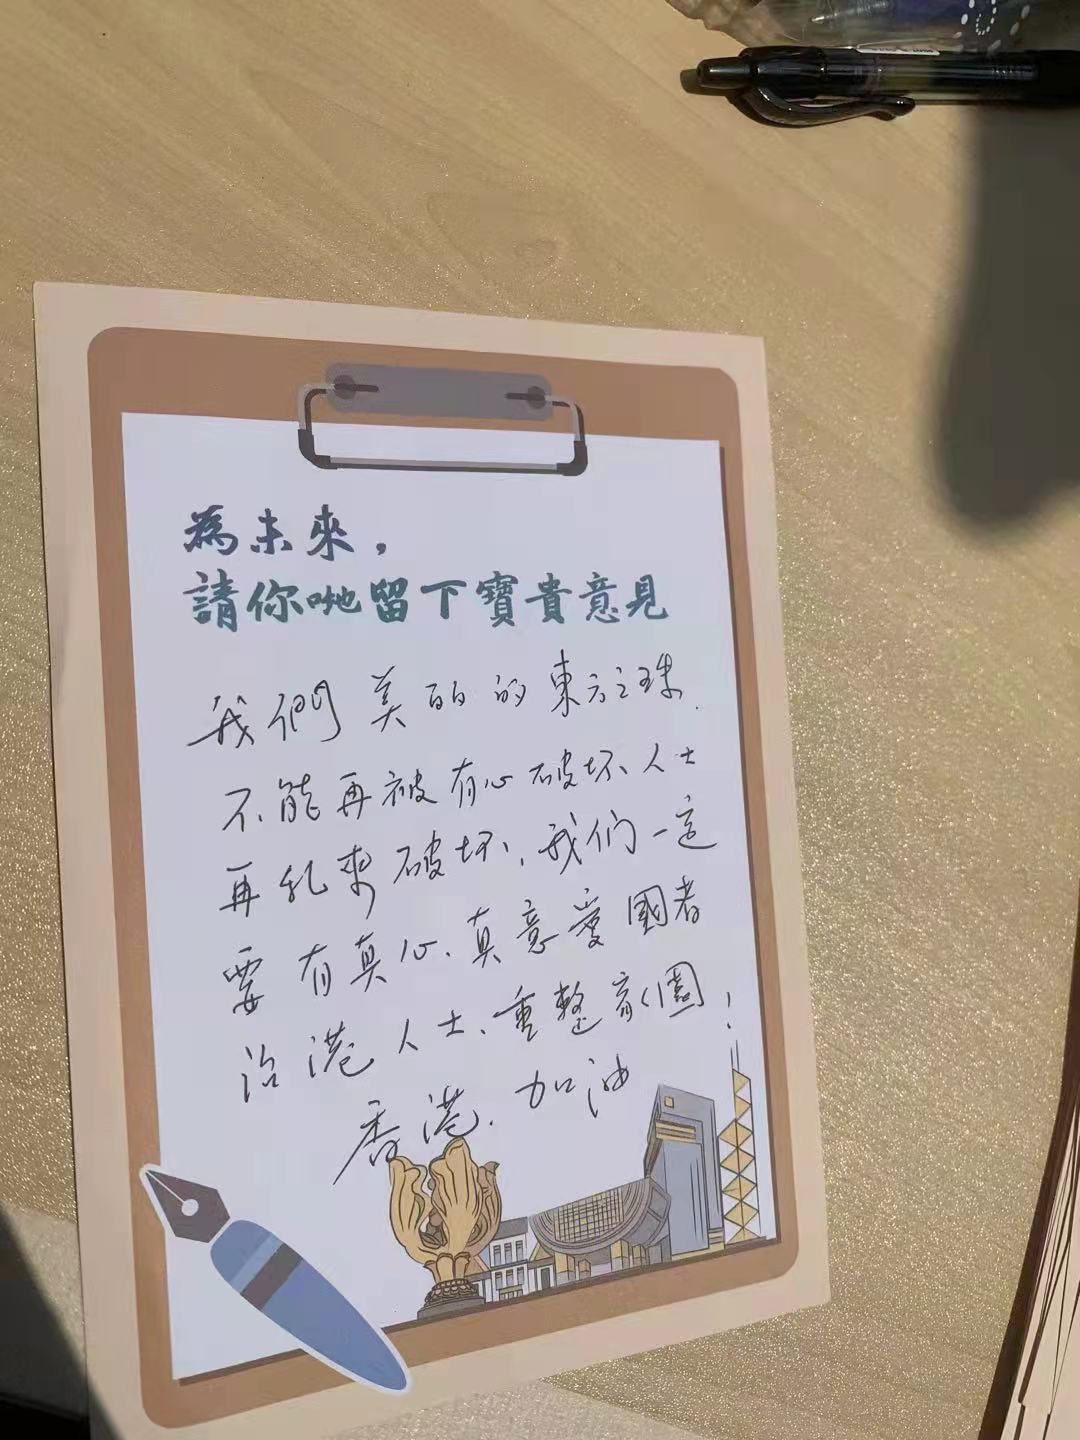 為未來，
請你哋留下寶貴意見
我們美丽的東方之珠.
不能再被有心破坏人士
再乱來破坏，我们一定
要有真心、真意愛國者
治港人士、重整家園！
香港.加油